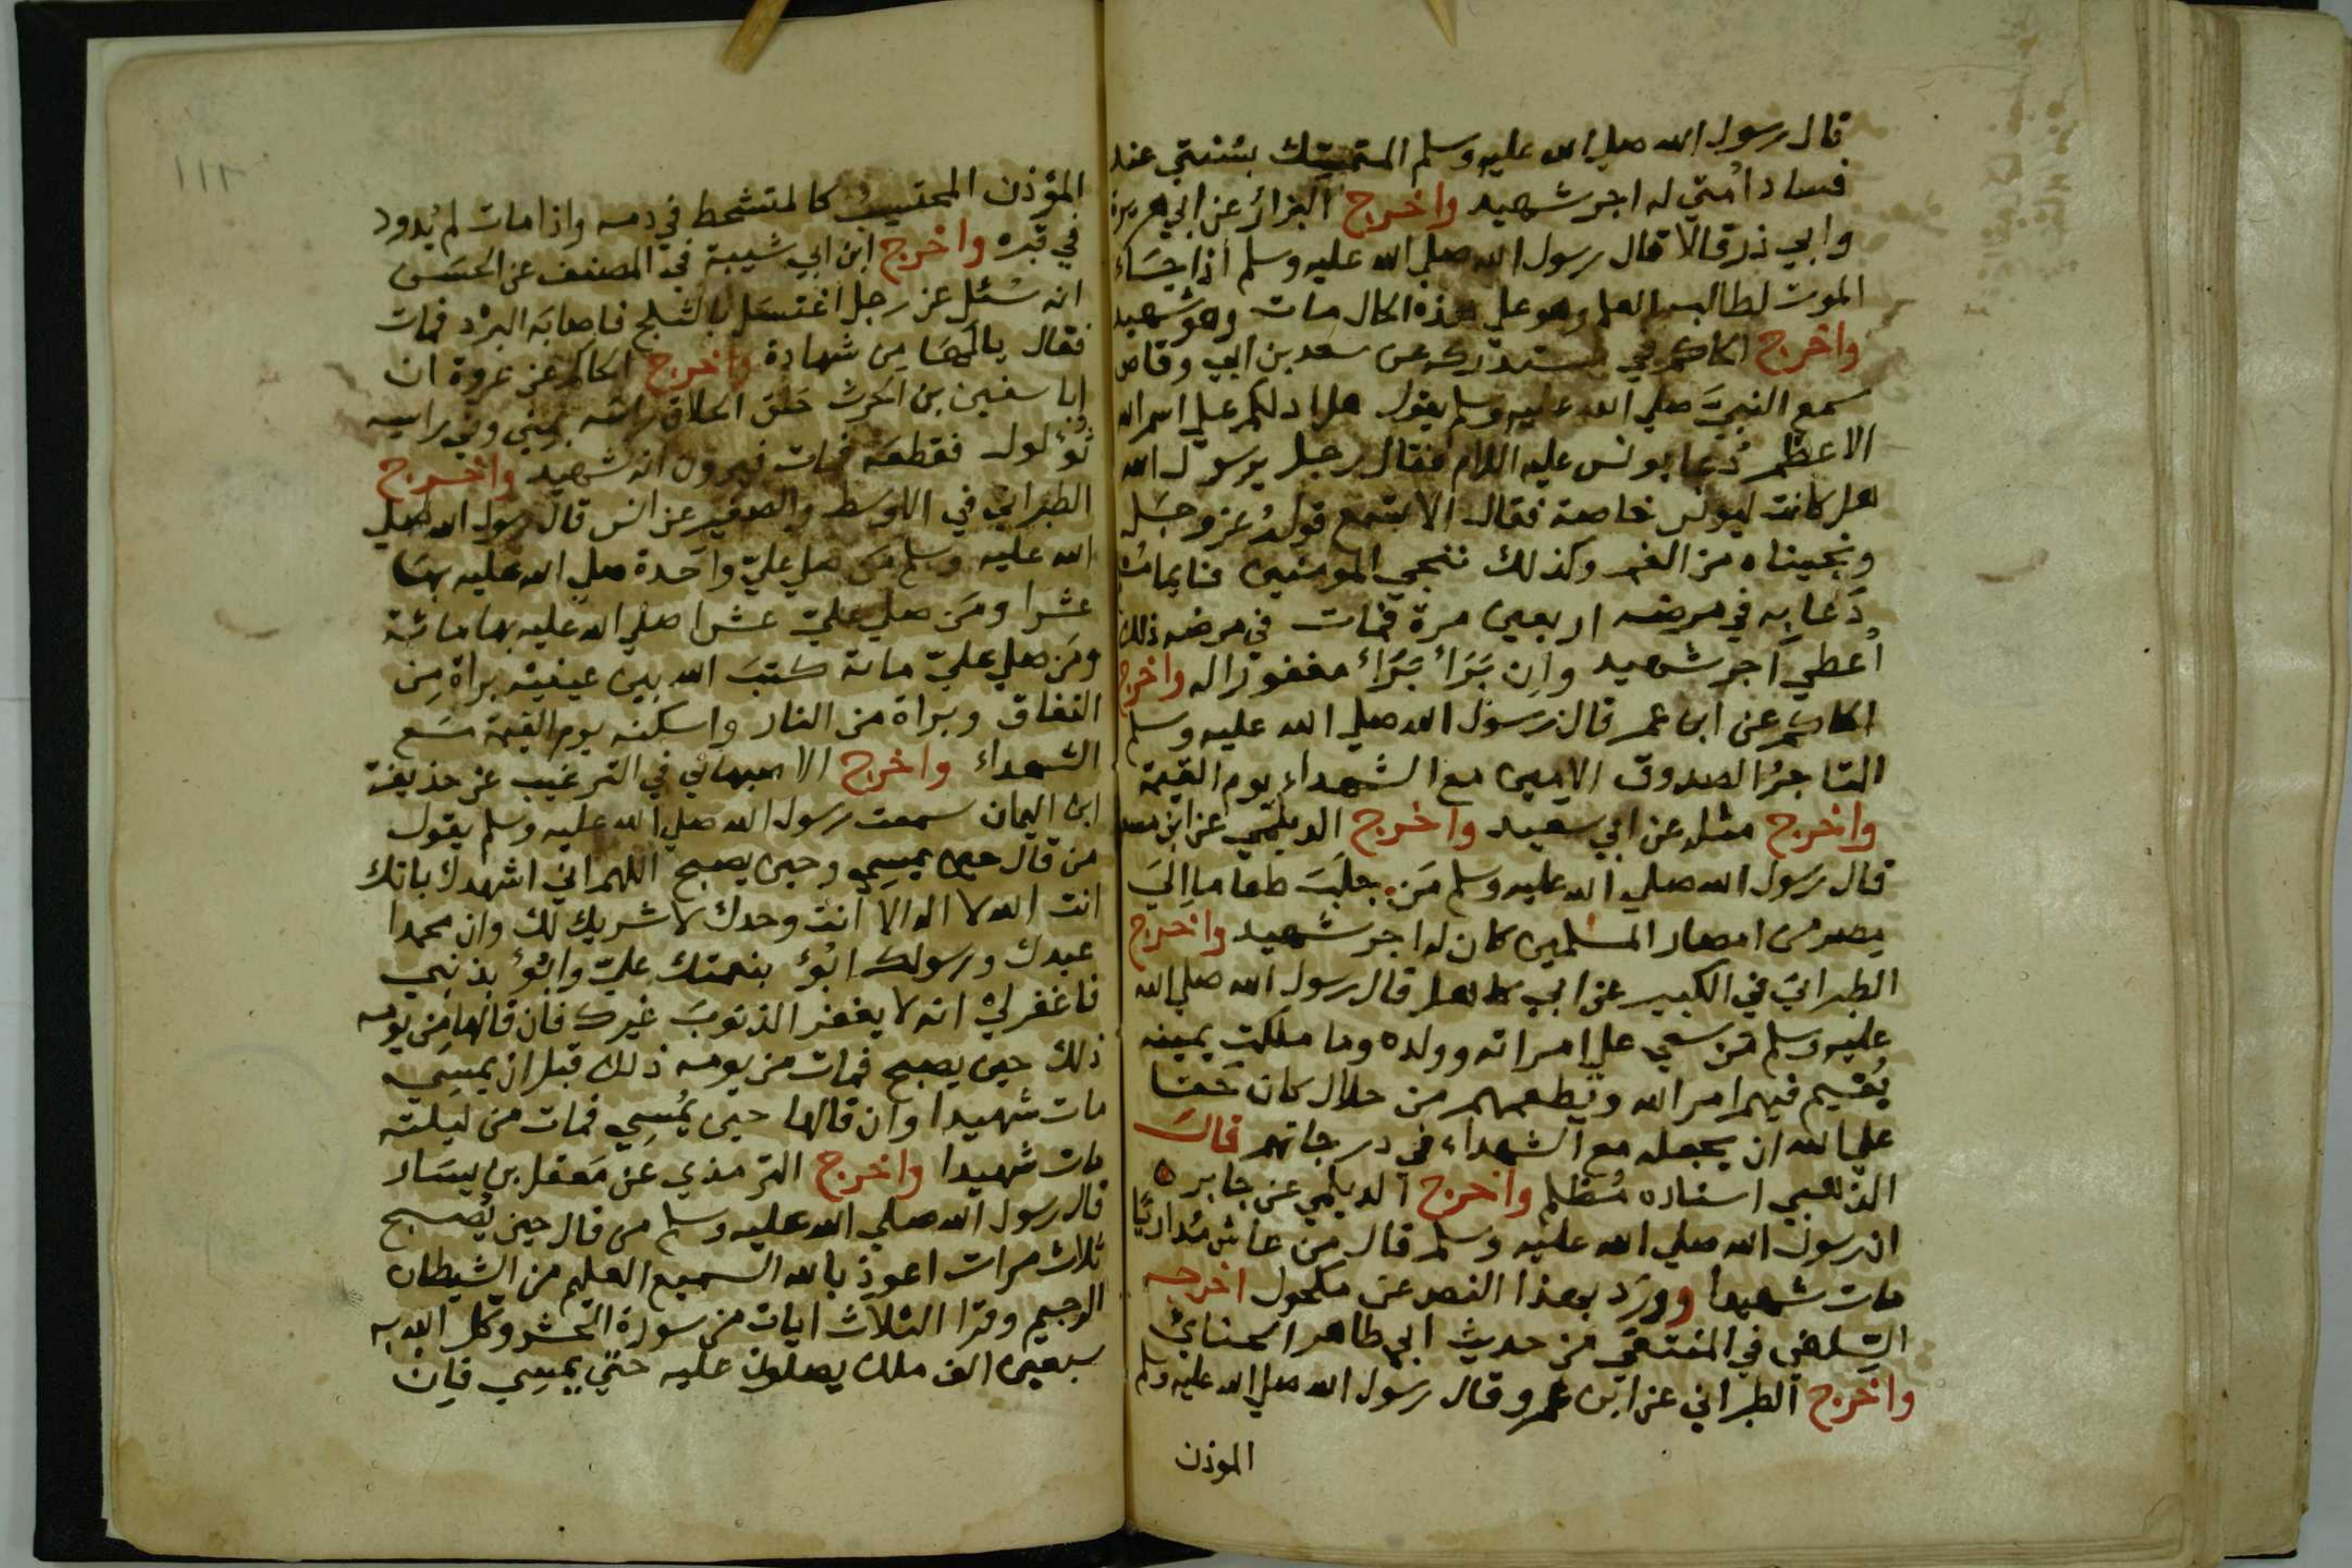 قال رسول الله صلي الله عليه وسلم المتمسك بسنتي عند
فساد امتي له اجر شهيد واخرج البزار عن ابي هريرة
وابي ذر قالا قال رسول الله صلي الله عليه وسلم اذا جاء
الموت لطالب العلم وهو علي هذه الحال مات وهو شهيد
واخرج الحاكم في مستدركه عن سعد بن ابي وقاص
سمع النبيَّ صلي الله عليه وسلم يقول هل ادلكم علي اسم الله
الاعظم دُعا يونس عليه السلام فقال رجل يرسول الله
هل كانت ليونس خاصة فقال الا تسمع قولهُ عز وجل
ونجيناه من الغم وكذلك ننجي المومنين فايما
دَعا به في مرضه اربعين مرة فمات في مرضه ذلك
اُعطي اجر شهيد وان بَرَأ بَرَأ مغفورا له واخرج
الحاكم عن ابن عمر قال رسول الله صلي الله عليه وسلم
التاجرُ الصدوق الامين مع الشهداء يوم القيمة
واخرج مثله عن ابي سعيد واخرج الديلمي عن ابن
قال رسول الله صلي الله عليه وسلم مَن جلبَ طعاما اِليَ
مصر من امصار المسلمين كان له اجر شهيد واخرج
الطبراني في الكبير عن ابي كاهل قال رسول الله صلي الله
عليه وسلم من سعي علي امراته وولده وما ملكت يمينه
يُقيم فيهم امر الله ويطعمهم من حلال كان حَقا
علي الله ان يجعله مع الشهداء في درجاتهم قال
الذهبي اسناده مُظلم واخرج الديلمي عن جابر ه
ان رسول الله صلي الله عليه وسلم قال من عاش مُداريًا
مات شهيدا ووردَ بهذا النص عن مكحول اخرجه
السِّلفي في المنتقي من حديث ابي طاهر الحنائي
واخرج الطبراني عن ابن عمرو قال رسول الله صلي الله عليه وسلم
الموذن
١١٢
المؤذن المحتسِبُ كالمتشحط في دمه واذا مات لم يُدود
في قبره واخرج ابن ابي شيبة في المصنف عن الحسَن
انه سُئل عن رجل اغتسَل بالثلج فاصابَه البرْد فمات
فقال يالَها مِن شهادة واخرج الحاكم عن عروة ان
ابا سفين بن الحرث حَلق الحلاق راسَه بمني وفي راسِه
ثُؤلول فقطعَه فمات فيرون انه شهيد واخرج
الطبراني في الاوسط والصغير عن انس قال رسول الله صلي
الله عليه وسلم مَن صلي عليّ واحدة صلي الله عليه بهَا
عشرا ومَن صلي عليّ عشرا صلي الله عليه بها مائة
ومَن صلي عليّ مائة كتبَ الله بين عينيه براة مِن
النفاق وبراة من النار واسكنه يوم القيمة مَع
الشهداء واخرج الاصبهاني في الترغيب عن حذيفة
ابن اليمان سمعت رسول الله صلي الله عليه وسلم يقول
من قال حين يمسِي وحين يصبح اللهم اني اشهدك بانك
انت الله لا اله الا انت وحدك لا شريك لك وان محمدا
عبدك ورسولك ابُوُّ بنعمتك عليّ وابُوُّ بذنبي
فاغفر لي انه لا يغفر الذنوبَ غيرك فان قالها مِن يومه
ذلك حين يصبح فمات من يومه ذلك قبل ان يمسِي
مات شهيدا وان قالها حين يُمسِي فمات من ليلته
مات شهيدا واخرج الترمذي عن مَعقل بن يسَار
قال رسول الله صلي الله عليه وسلم من قال حين يُصبح
ثلاث مرات اعوذ بالله السميع العليم من الشيطان
الرجيم وقرا الثلاث ايات من سورة الحشر وكّل الله به
سبعين الف ملك يصلون عليه حتي يمسِي فاِن